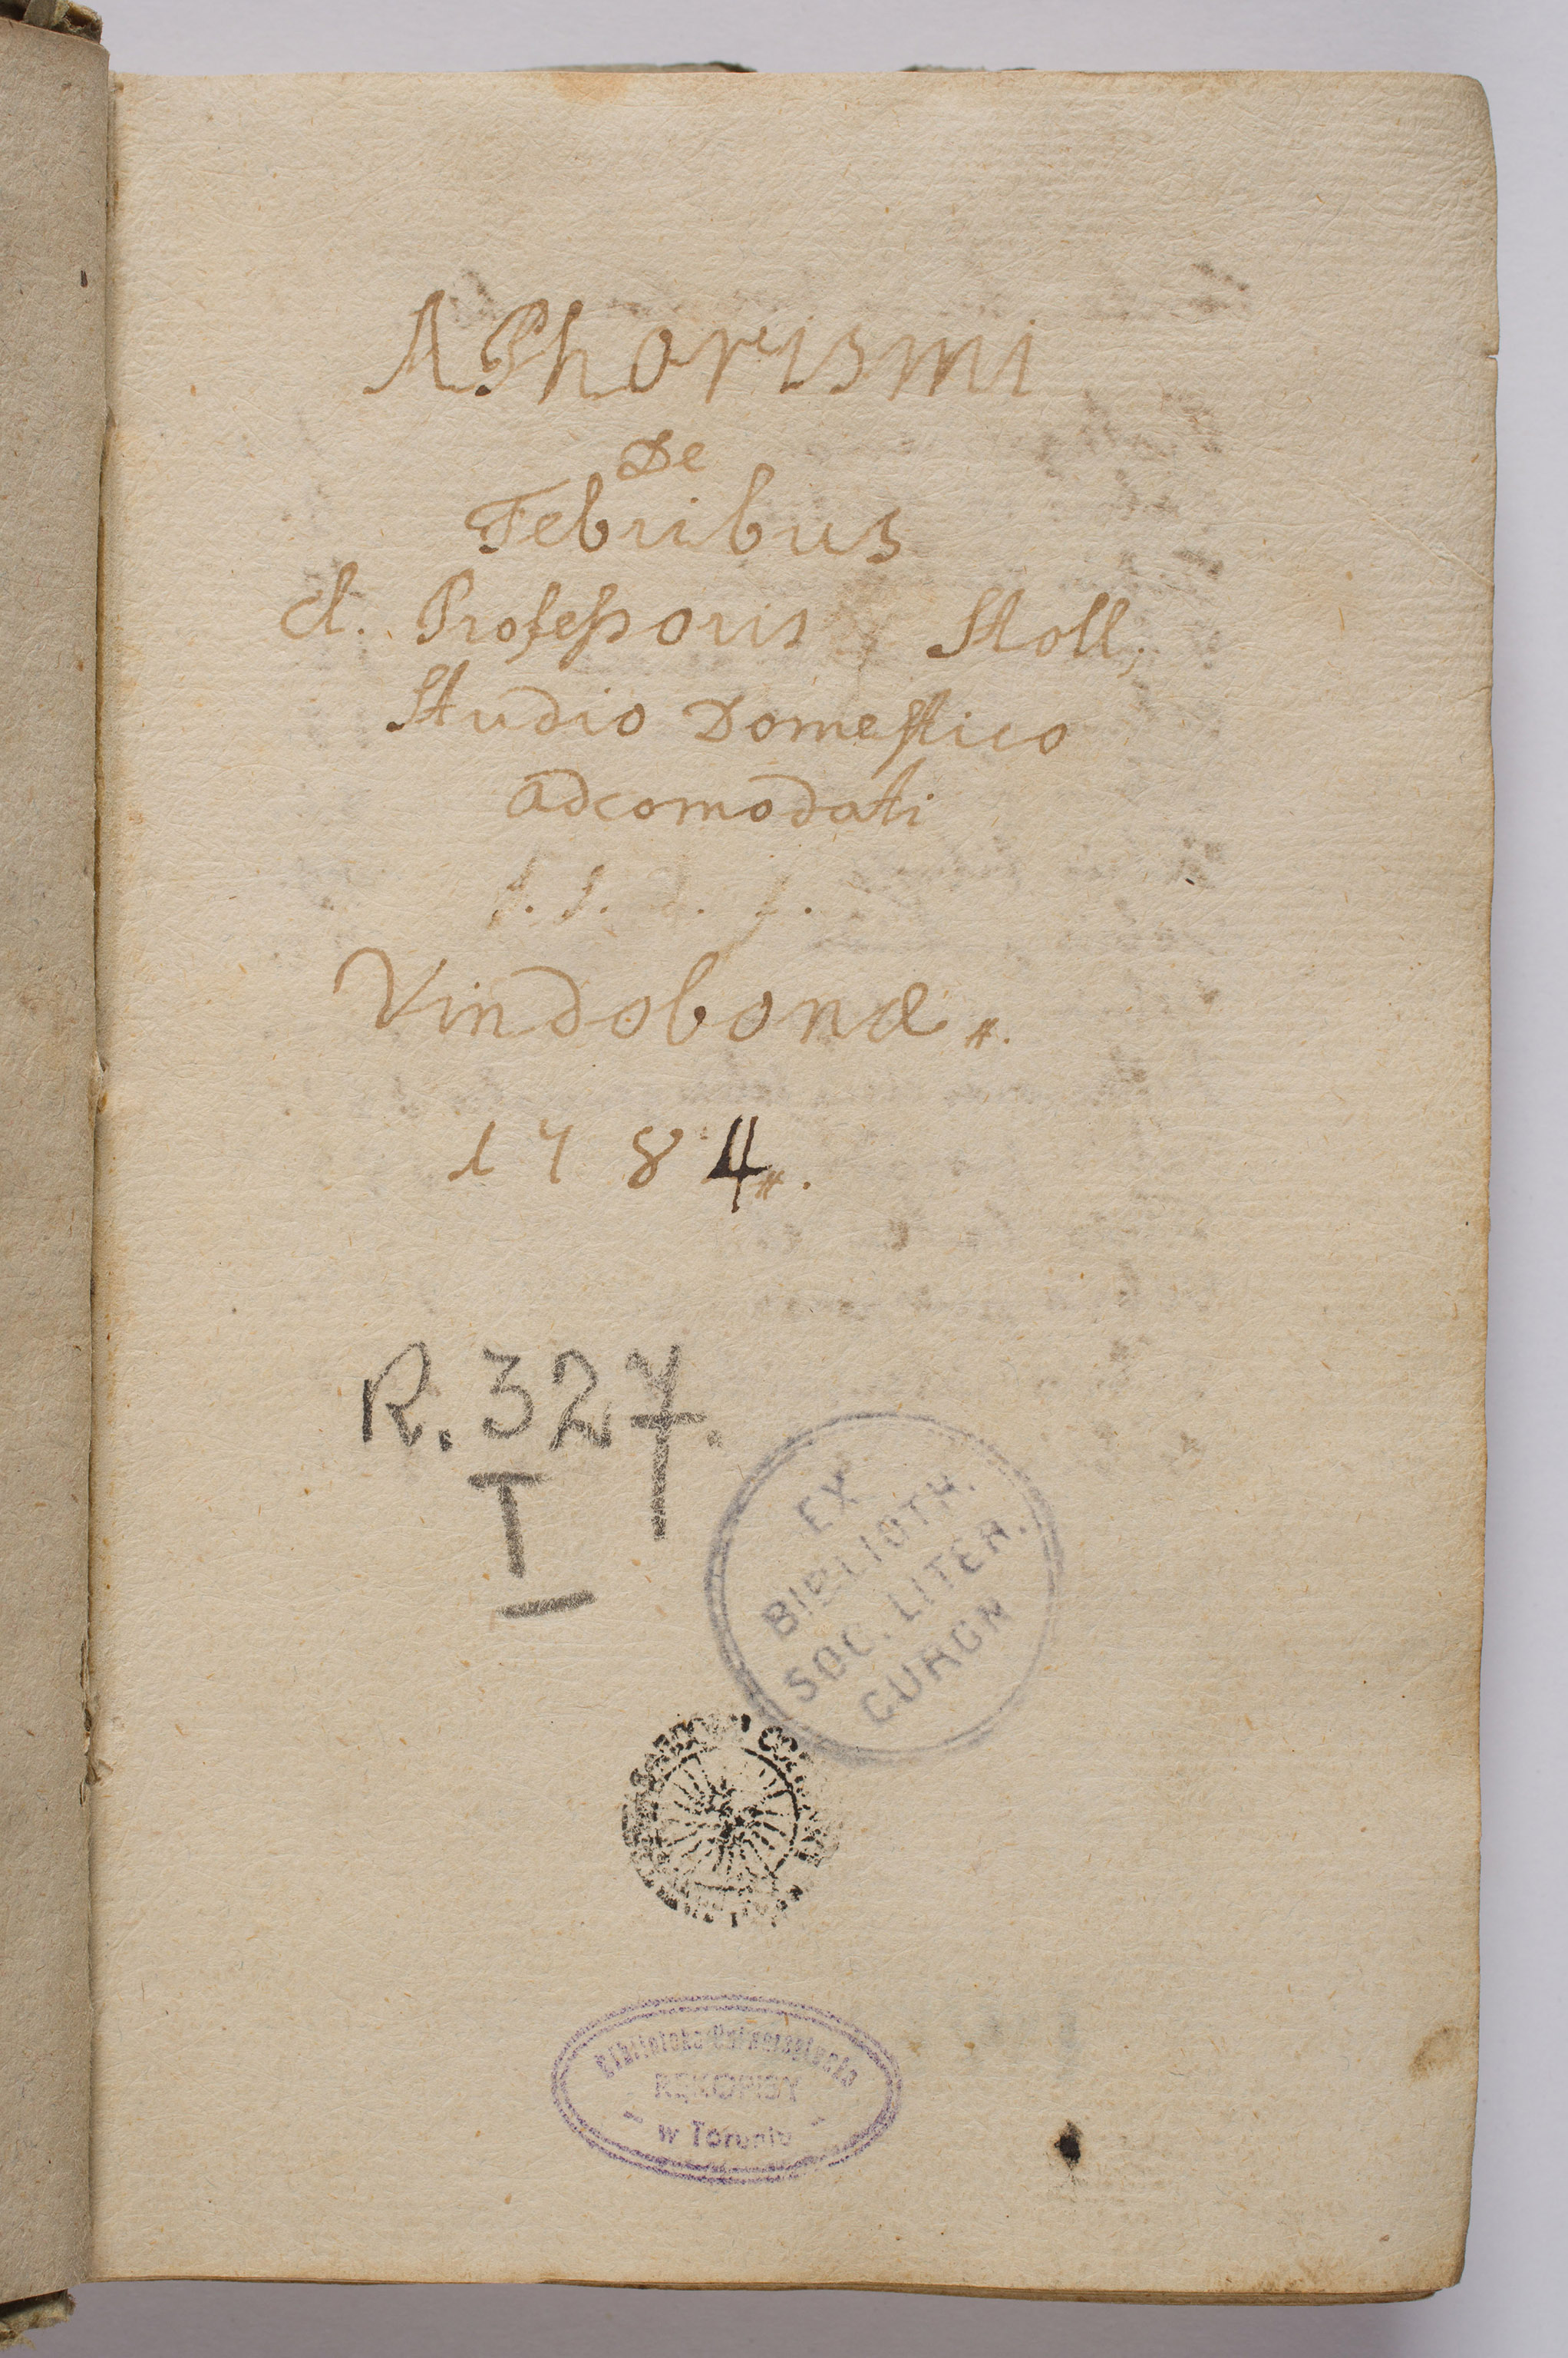 APhorismi
De
Febribus
Cl. Professoris Stoll,
Studio Domestico
adcomodati
Vindobonæ.
1784.
R. 327.
I
EX
BIBLIOTH.
SOC. LITER.
CURON
Biblioteka Uniwersytecka
RĘKOPISY
w Toruniu